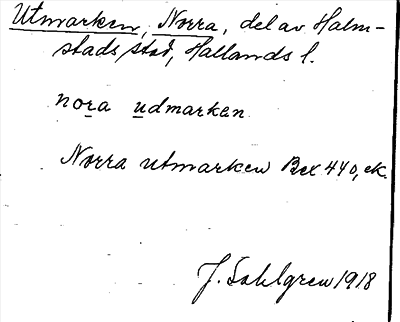 Utmarken, Norra, del av Halm-
stads stad, Hallands l.
nora udmarken
Norra utmarken Bex 440, ek.
J. Sahlgren 1918